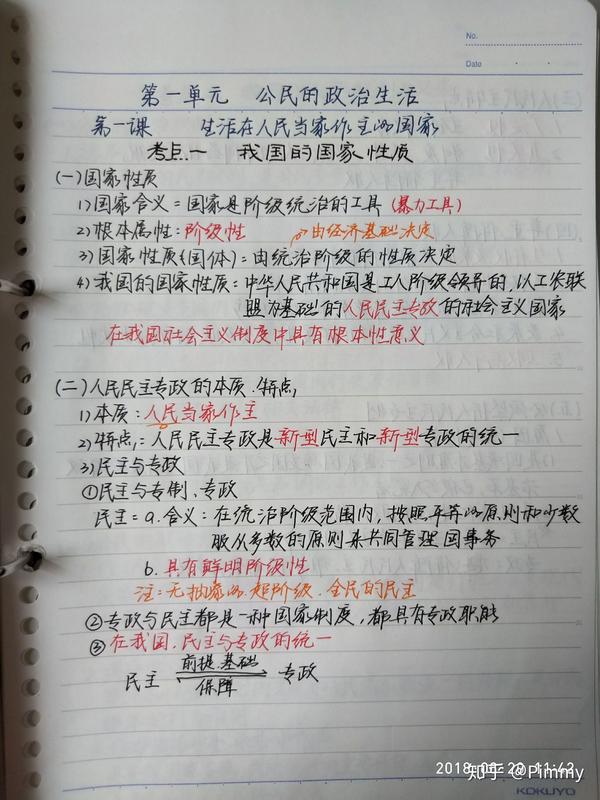 No.
Date
第一单元 公民的政治生活
第一课 生活在人民当家作主的国家
考点一 我国的国家性质
(一)国家性质
1)国家含义=国家是阶级统治的工具(暴力工具)
2)根本属性:阶级性 由经济基础决定
3)国家性质(国体)=由统治阶级的性质决定
4)我国的国家性质=中华人民共和国是工人阶级领导的,以工农联
盟为基础的人民民主专政的社会主义国家
在我国社会主义制度中具有根本性意义
(二)人民民主专政的本质.特点
1)本质:人民当家作主
2)特点:人民民主专政是新型民主和新型专政的统一
3)民主与专政
①民主与专制.专政
民主=a.含义:在统治阶级范围内,按照平等的原则和少数
服从多数的原则来共同管理国事务
b.具有鲜明阶级性
注:无抽象的.超阶级.全民的民主
②专政与民主都是一种国家制度,都具有专政职能
③在我国.民主与专政的统一
前提.基础
民主 专政
保障
2018 11:42
知乎 @Pimmy
KOKUYO